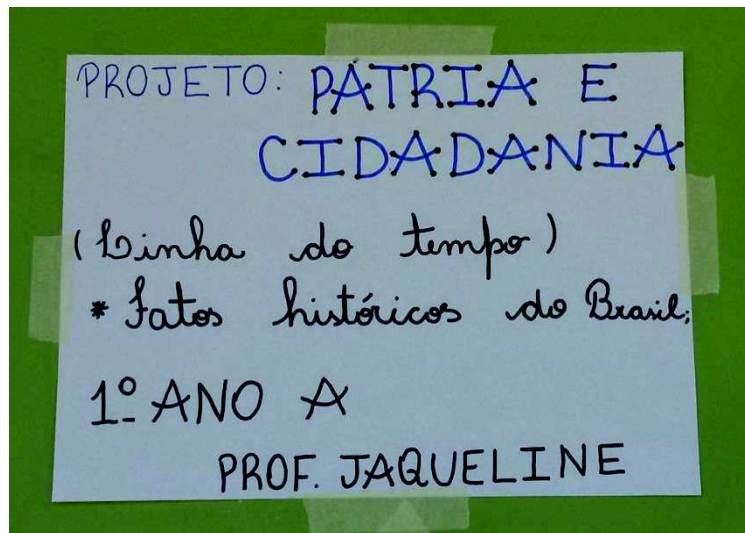 PROJETO: PÁTRIA E
CIDADANIA
(Linha do tempo)
* Fatos históricos do Brasil;
1º ANO A
PROF. JAQUELINE